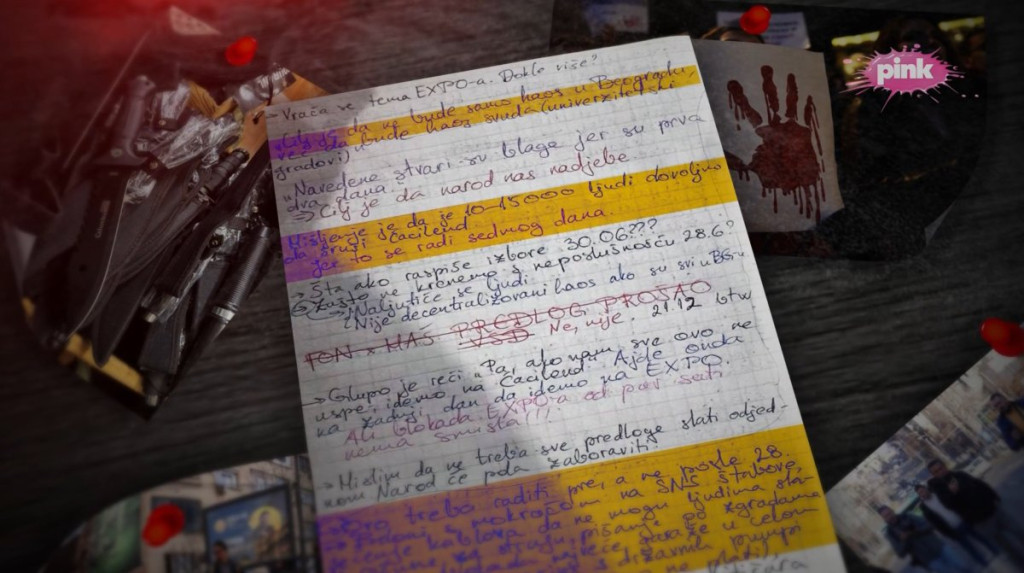 pink
→ Vraća se tema EXPO-a. Dokle više?
Cilj je da ne bude samo haos u Beogradu,
već da bude haos svuda (univerzitetski
gradovi)
"Navedene stvari su blage jer su prva
dva dana"
⇒ Cilj je da narod nas nadjebe
Mišljenje je da je 10-15000 ljudi dovoljno
da sruši Ćacilend
jer to se radi sedmog dana.
→ Šta ako raspiše izbore 30.06???
Zašto je krenemo s neposlušnošću 28.6?
Naljutiće se ljudi
Nije decentralizovani haos ako su svi u BG-u
FON: NAŠ PREDLOG PROŠAO
Ne, nije. 21.12 btw
→ Glupo je reći "Pa, ako nam sve ovo ne
uspe, idemo na Ćacilend. Ajde onda
na zadnji dan da idemo na EXPO.
Ali blokada EXPO-a od par sati
nema smisla!!!
→ Mislim da ne treba sve predloge slati odjed-
nom. Narod će posle zaboraviti.
treba raditi pre, a ne posle 28.
kablova da ne mogu
na SNS štabove,
za struju, pisanje
ljudima
garaže u celom
s državnim
od zgradama